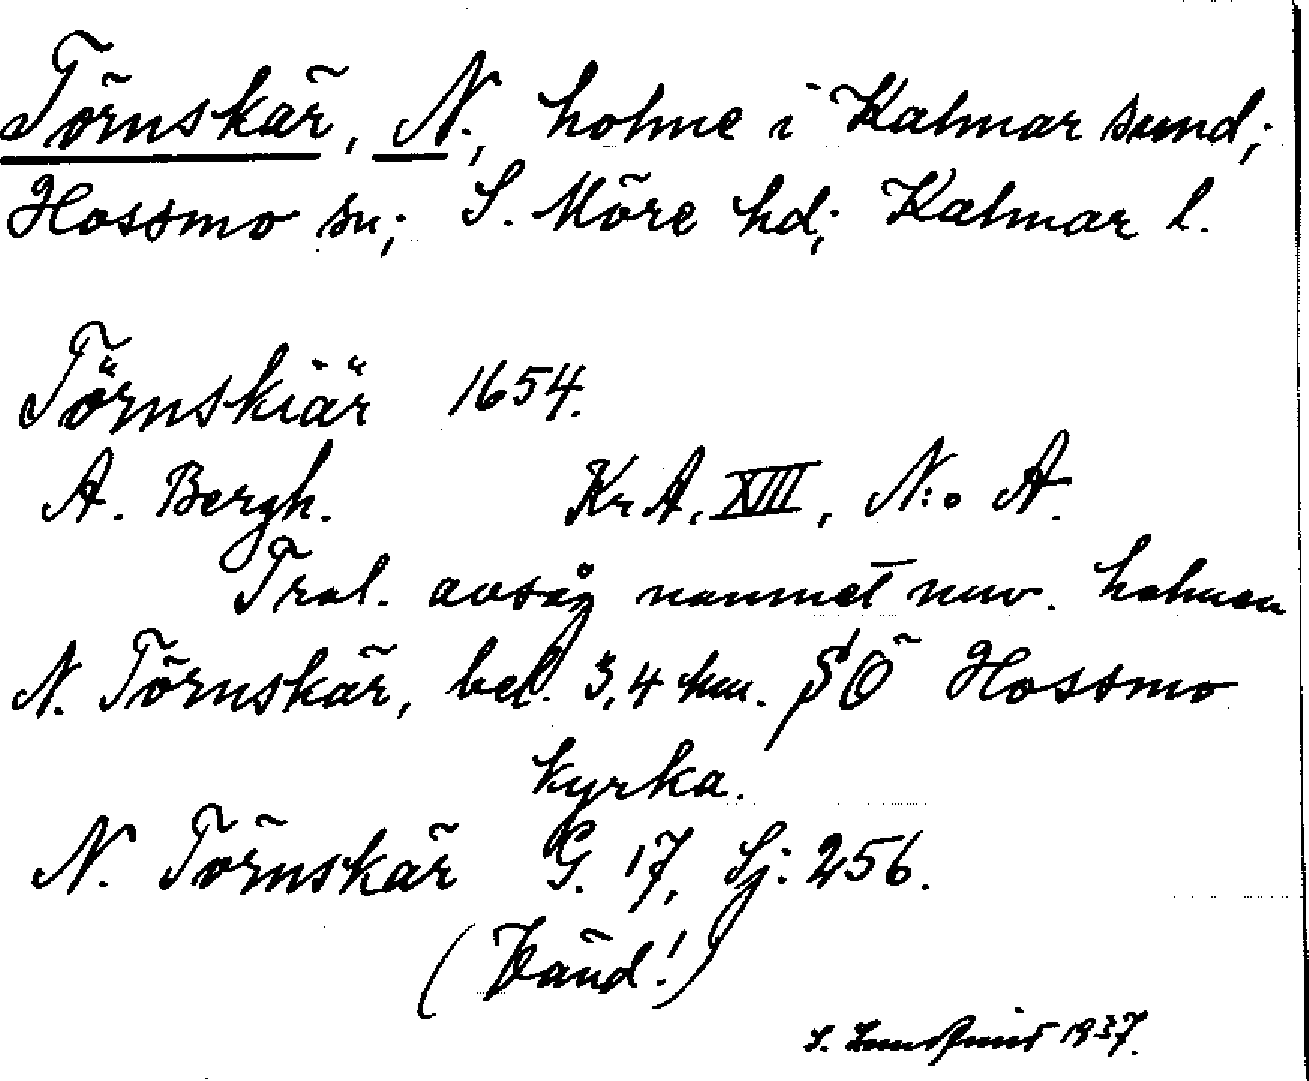 Törnskär, N., holme i Kalmar sund;
Hossmo sn; S. Möre hd; Kalmar l.
Törnskiär 1654.
A. Bergh. KrA, XIII, N:o A.
Trol. avsåg namnet nuv. holmen
N. Törnskär, bel. 3,4 km. SÖ Hossmo
kyrka.
N. Törnskär G. 17, Sj: 256.
(Känd!)
S. Lundquist 1937.